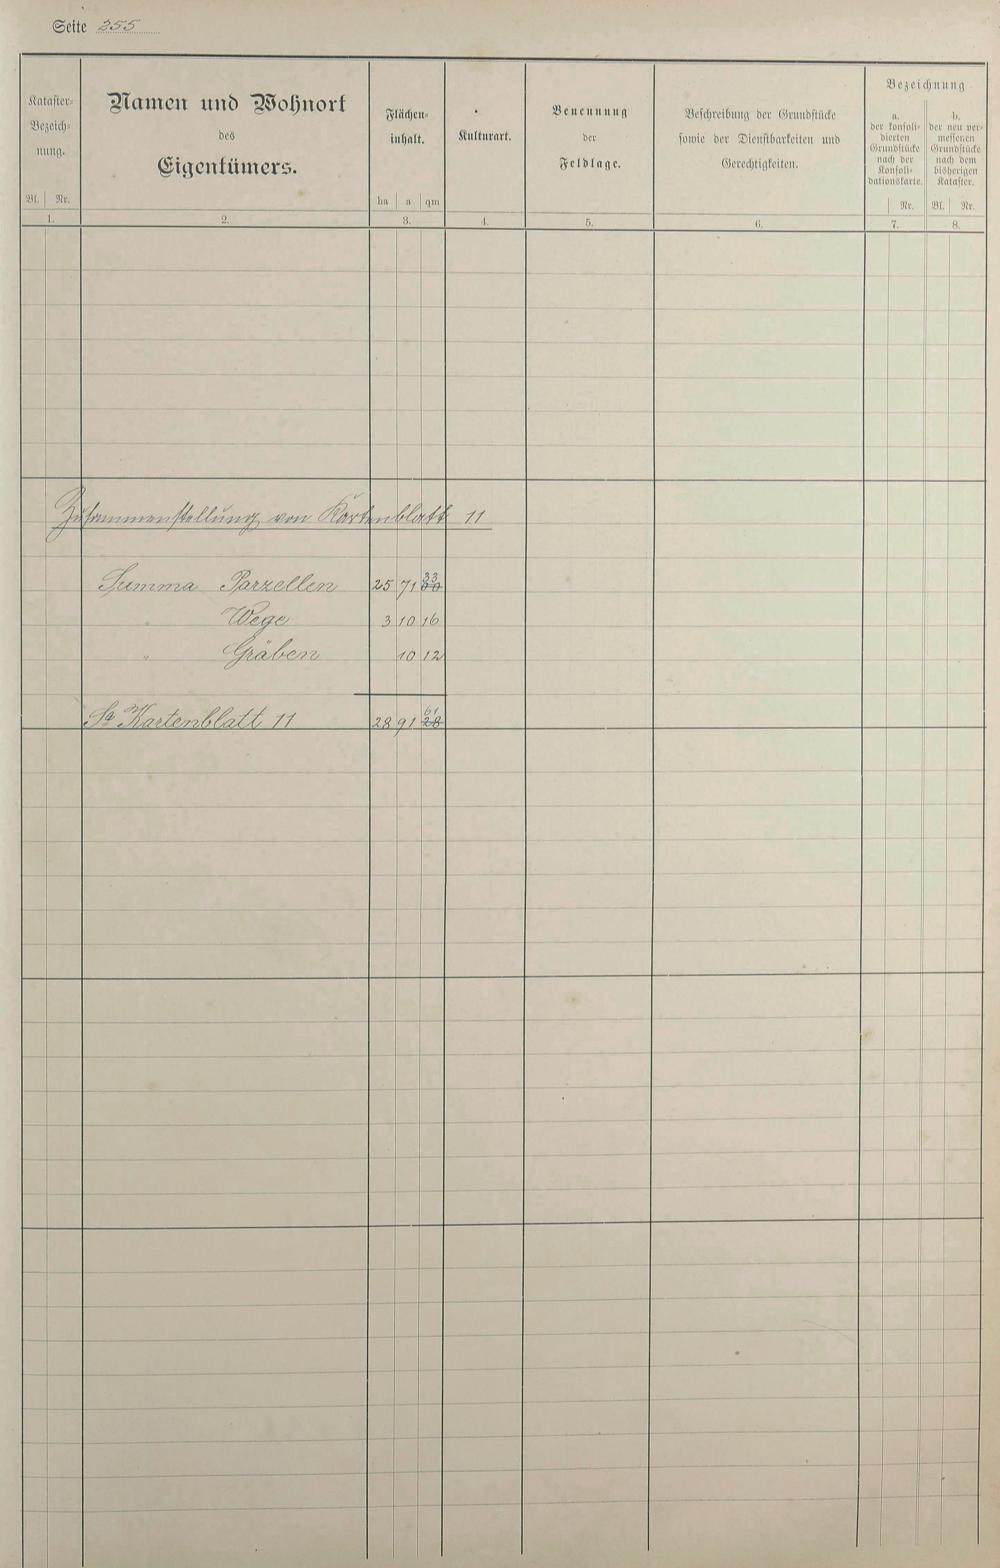 Seite 255
Kataster-
Bezeich-
nung.
Bl. Nr.
Namen und Wohnort
des
Eigentümers.
Flächen-
inhalt.
ha a qm
Kulturart.
Benennung
der
Feldlage.
Beschreibung der Grundstücke
sowie der Dienstbarkeiten und
Gerechtigkeiten.
Bezeichnung
a.
der konsoli-
dierten
Grundstücke
nach der
Konsoli-
dationskarte.
Nr.
b.
der neu ver-
messenen
Grundstücke
nach dem
bisherigen
Kataster.
Bl. Nr.
1. 2. 3. 4. 5. 6. 7. 8.
Zusammenstellung von Kartenblatt 11
33
Summa Parzellen 25 71 00
" Wege 3 10 16
" Gräben 10 12
61
Sa Kartenblatt 11 28 91 28